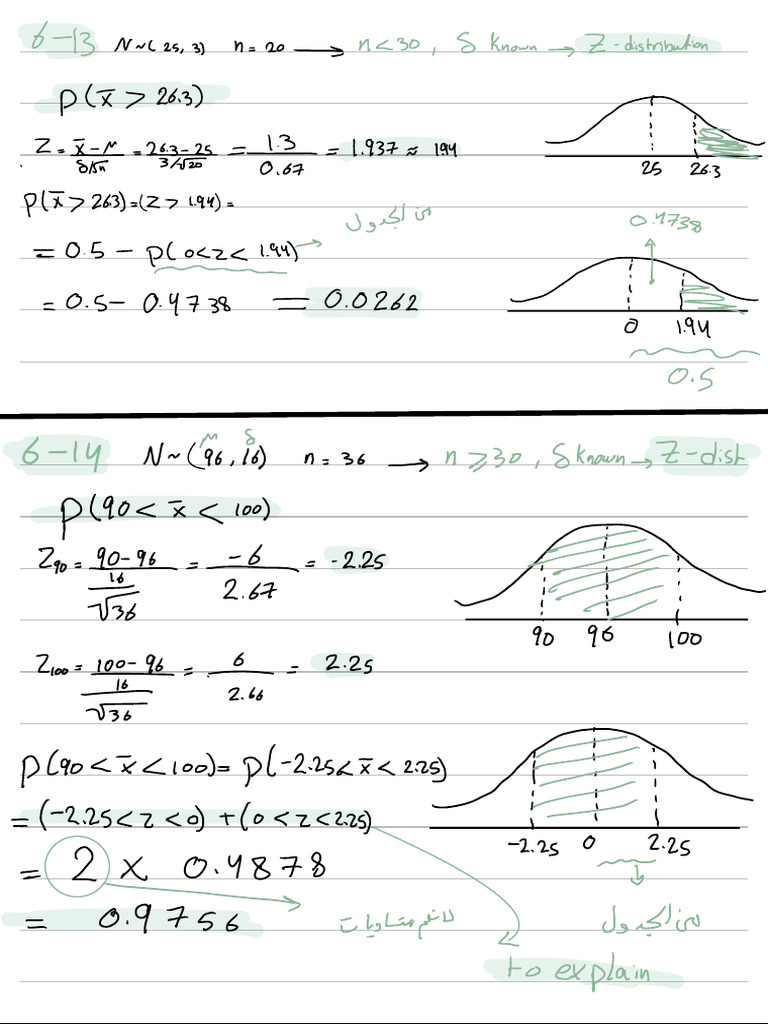 6-13 N~(25, 3) n = 20 → n < 30, δ known → Z-distribution
P(x̄ > 26.3)
Z = x̄-μ / δ/√n = 26.3-25 / 3/√20 = 1.3 / 0.67 = 1.937 ≈ 1.94
25 26.3
P(x̄ > 26.3) = (Z > 1.94) =
من الجدول
0.4738
= 0.5 - P(0<Z< 1.94) →
= 0.5 - 0.4738 = 0.0262
0 1.94
0.5
6-14 N~(96, 16) n = 36 → n ≥ 30, δ known → Z-dist
μ δ
P(90 < x̄ < 100)
Z90 = 90-96 / 16/√36 = -6 / 2.67 = -2.25
90 96 100
Z100 = 100-96 / 16/√36 = 6 / 2.66 = 2.25
P(90 < x̄ < 100) = P(-2.25 < x̄ < 2.25)
= (-2.25 < Z < 0) + (0 < Z < 2.25)
-2.25 0 2.25
= 2 × 0.4878
= 0.9756
لانهم متساويات
من الجدول
to explain